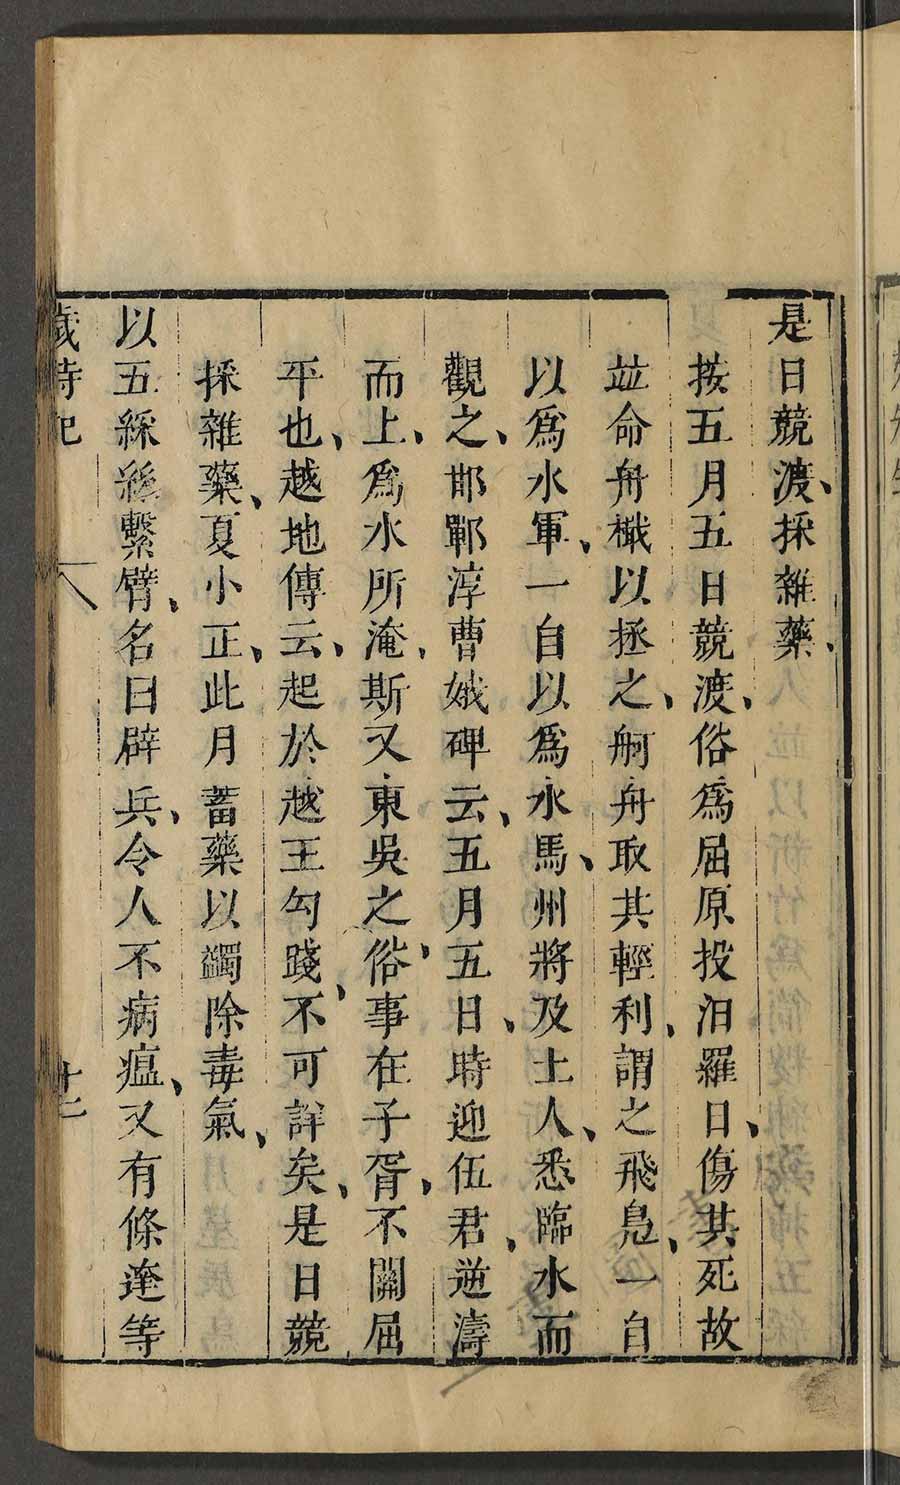 是日競渡、採雜藥、
按五月五日競渡、俗爲屈原投汨羅日、傷其死故
竝命舟檝以拯之、舸舟取其輕利、謂之飛鳧、一自
以爲水軍、一自以爲水馬、州將及土人、悉臨水而
觀之、邯鄲淳曹娥碑云、五月五日、時迎伍君、逆濤
而上、爲水所淹、斯又東吳之俗、事在子胥、不關屈
平也、越地傳云、起於越王勾踐、不可詳矣、是日競
採雜藥、夏小正、此月蓄藥以蠲除毒氣、
以五綵絲繫臂、名曰辟兵、令人不病瘟、又有條達等
歲時記